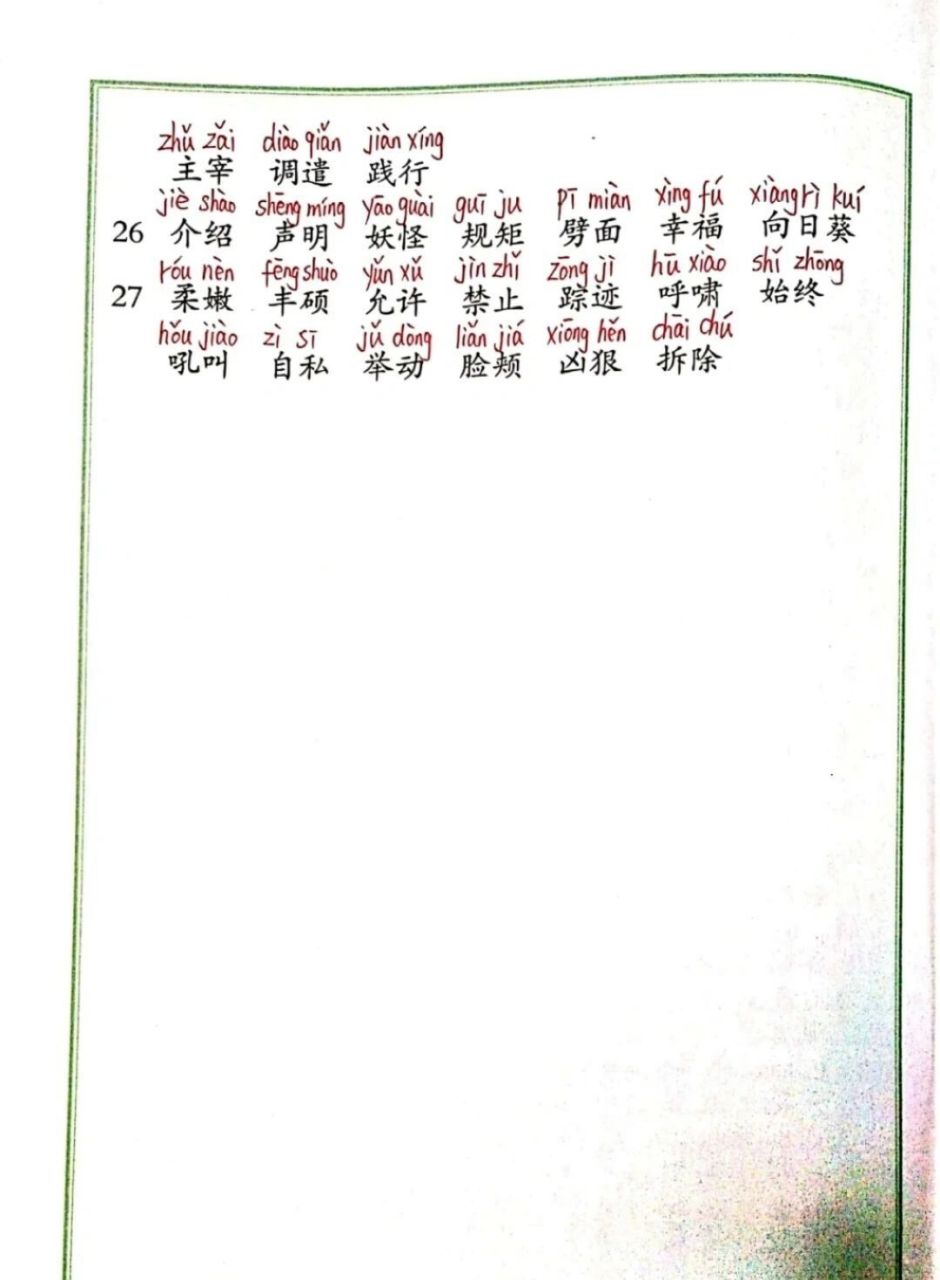 zhǔ zǎi diào qiǎn jiàn xíng
主宰 调遣 践行
jiè shào shēng míng yāo guài guī ju pī miàn xìng fú xiàng rì kuí
26 介绍 声明 妖怪 规矩 劈面 幸福 向日葵
róu nèn fēng shuò yǔn xǔ jìn zhǐ zōng jì hū xiào shǐ zhōng
27 柔嫩 丰硕 允许 禁止 踪迹 呼啸 始终
hǒu jiào zì sī jǔ dòng liǎn jiá xiōng hěn chāi chú
吼叫 自私 举动 脸颊 凶狠 拆除